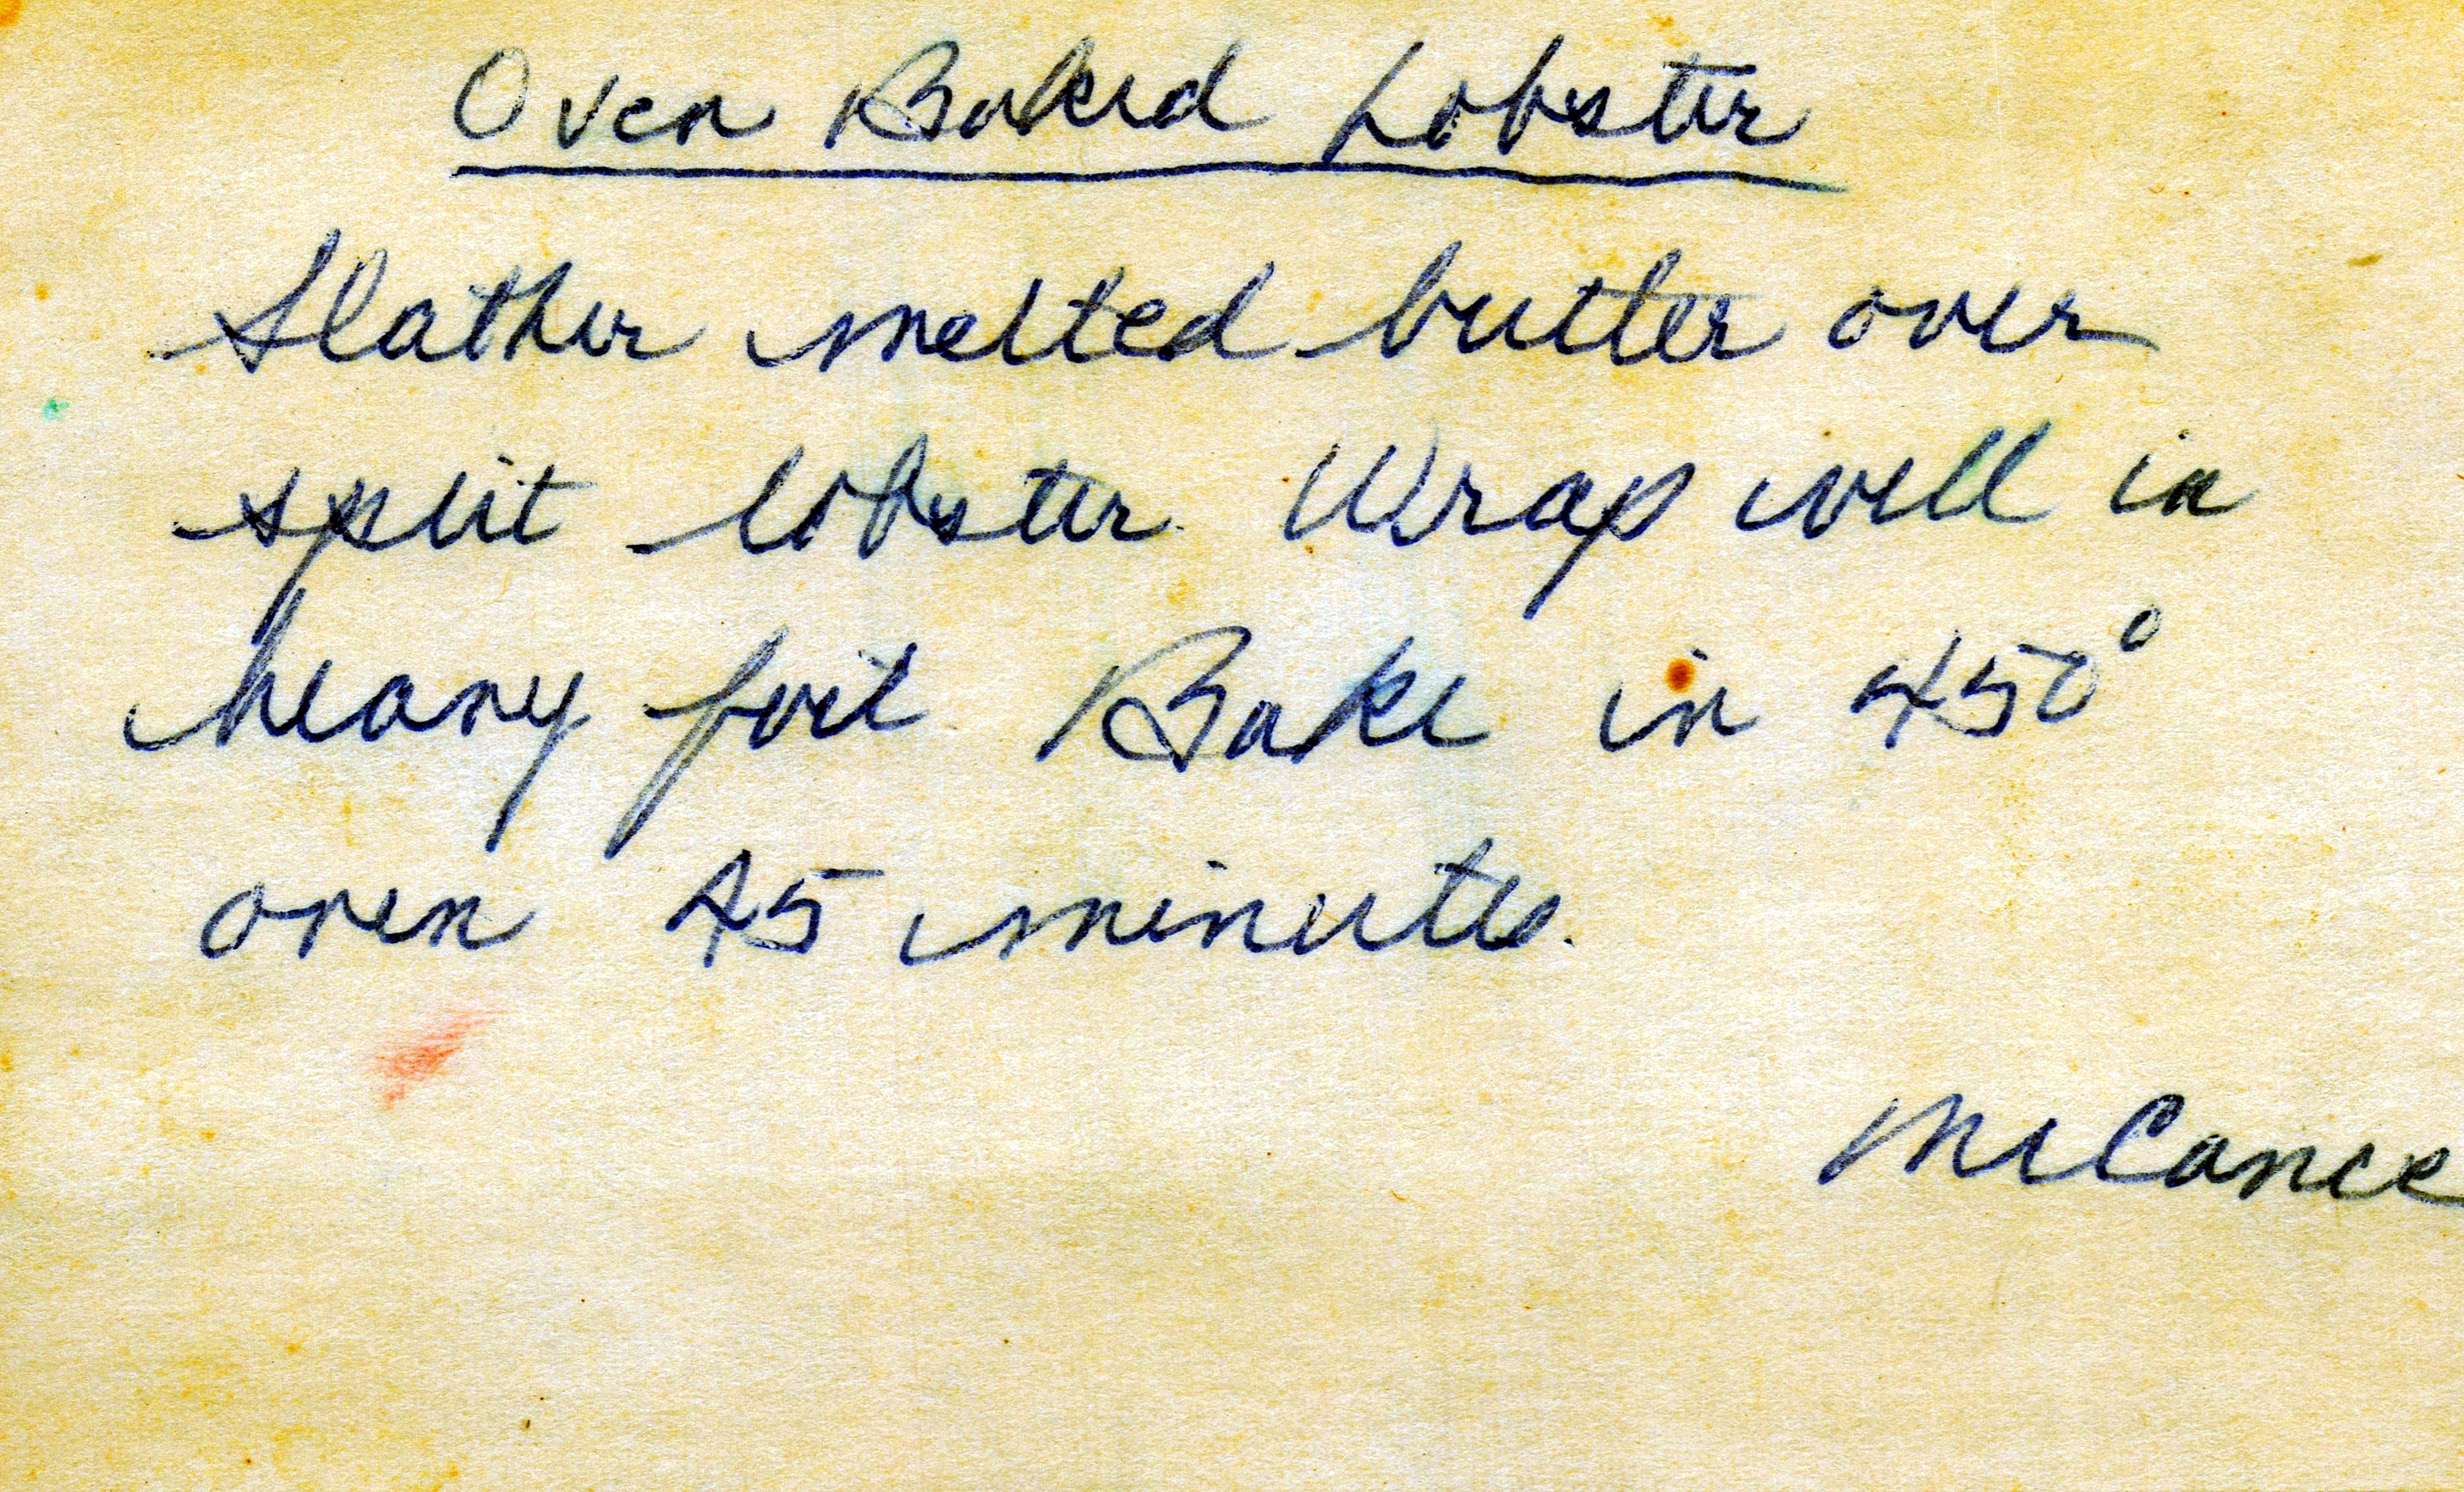 Oven Baked Lobster
Slather melted butter over
split lobster. Wrap well in
heavy foil. Bake in 450°
oven 45 minutes.
McCance